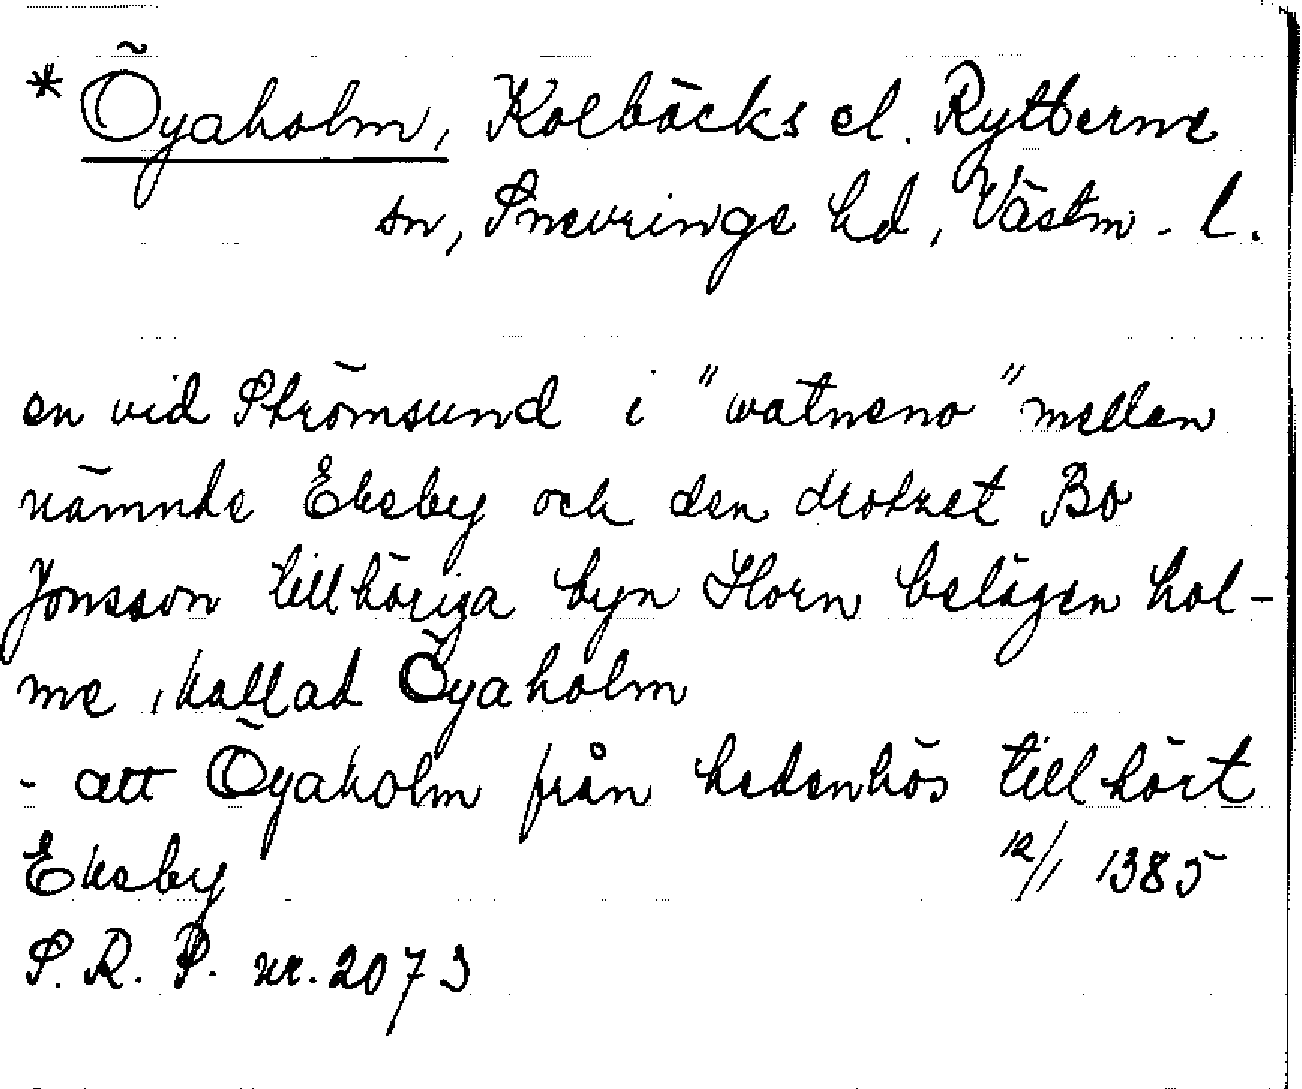 * Öyaholm, Kolbäcks el. Rytterne
sn, Snevringe hd, Västm. l.
en vid Strömsund i "watneno" mellan
nämnde Eksby och den drotset Bo
Jonsson tillhöriga byn Horn belägen hol-
me, kallad Öyaholm
- att Öyaholm från hedenhös tillhört
Eksby 12/1 1385
S. R. P. nr. 2073